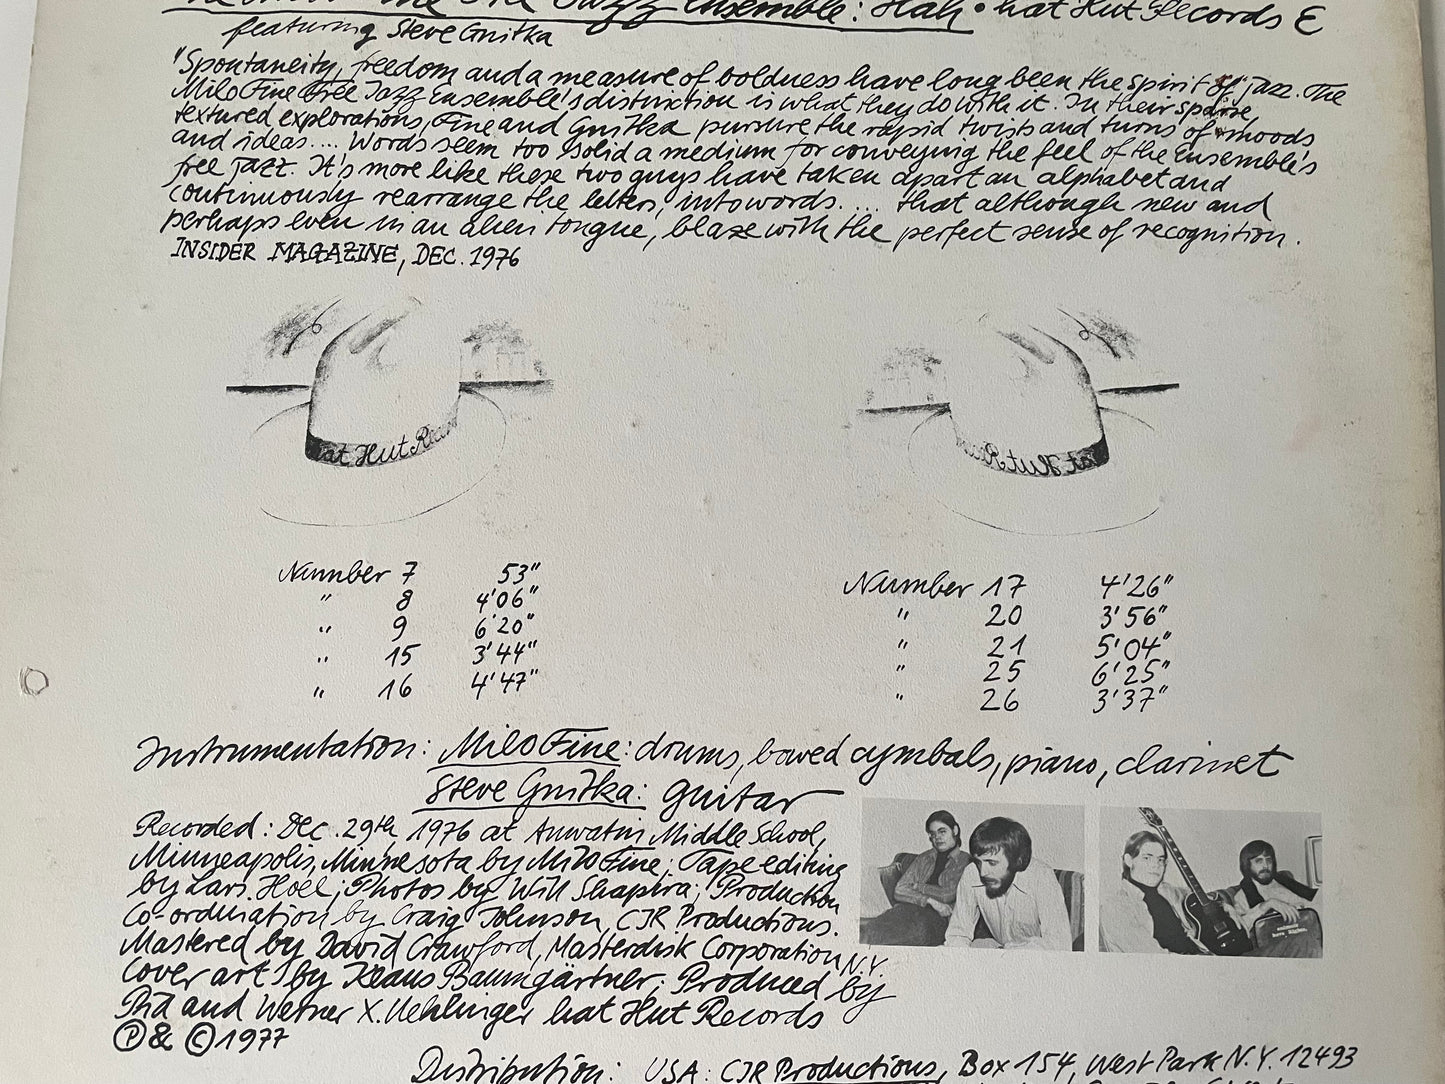 The Milo Fine Free Jazz Ensemble: Hah • hat Hut Records E
featuring Steve Gnitka
"Spontaneity, freedom and a measure of boldness have long been the spirit of jazz. The
Milo Fine Free Jazz Ensemble's distinction is what they do with it. In their sparse,
textured explorations, Fine and Gnitka pursure the rapid twists and turns of moods
and ideas.... Words seem too solid a medium for conveying the feel of the Ensemble's
free jazz. It's more like these two guys have taken apart an alphabet and
continuously rearrange the letters, into words.... that although new and
perhaps even in an alien tongue, blaze with the perfect sense of recognition.
INSIDER MAGAZINE, DEC. 1976
at Hut Recor
at Hut Rec
Number 7 53"
" 8 4'06"
" 9 6'20"
" 15 3'44"
" 16 4'47"
Number 17 4'26"
" 20 3'56"
" 21 5'04"
" 25 6'25"
" 26 3'37"
Instrumentation: Milo Fine: drums, bowed cymbals, piano, clarinet
Steve Gnitka: guitar
Recorded: Dec. 29th 1976 at Anwatin Middle School,
Minneapolis, Minnesota by Milo Fine; Tape editing
by Lars Hoel; Photos by Will Shapira; Production
Co-ordination by Craig Johnson, CJR Productions.
Mastered by David Crawford, Masterdisk Corporation N.Y.
Cover art by Klaus Baumgärtner; Produced by
Pia and Werner X. Uehlinger hat Hut Records
Ⓟ & © 1977
Distribution: USA: CJR Productions, Box 154, West Park N.Y. 12493